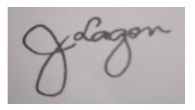 J Lagon